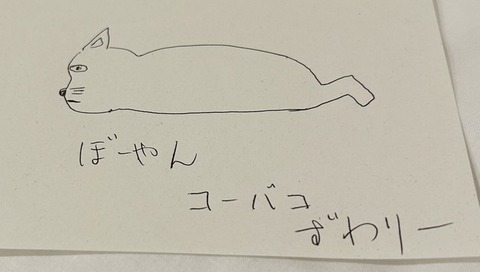 ぼーやん
コーバコ
ずわりー